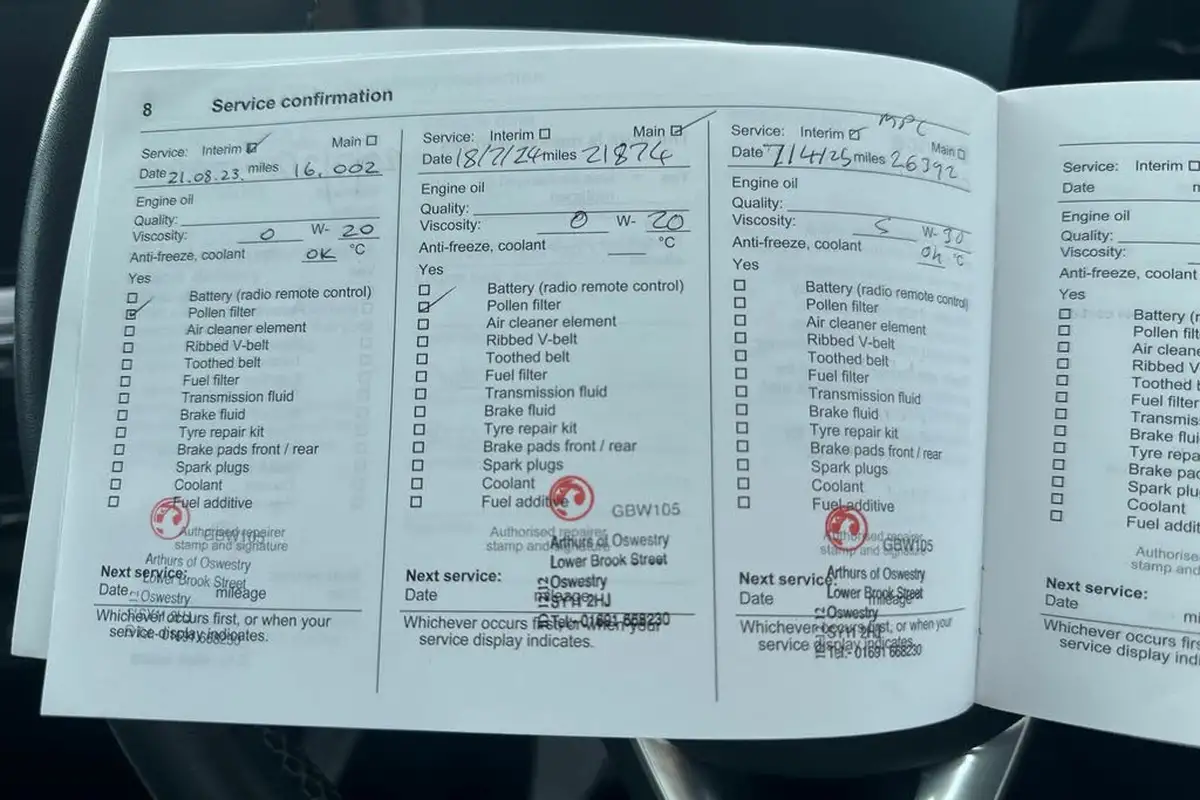 8 Service confirmation
Service: Interim ☑ Main ☐
Date 21.08.23 miles 16,002
Engine oil
Quality:
Viscosity: 0 W- 20
Anti-freeze, coolant OK °C
Yes
☐ Battery (radio remote control)
☑ Pollen filter
☐ Air cleaner element
☐ Ribbed V-belt
☐ Toothed belt
☐ Fuel filter
☐ Transmission fluid
☐ Brake fluid
☐ Tyre repair kit
☐ Brake pads front / rear
☐ Spark plugs
☐ Coolant
☐ Fuel additive
GBW105
Authorised repairer
stamp and signature
Arthurs of Oswestry
Lower Brook Street
Next service:
Oswestry
Date mileage
SY11 2HJ
Whichever occurs first, or when your
service display indicates.
Service: Interim ☐ Main ☑
Date 18/7/24 miles 21874
Engine oil
Quality:
Viscosity: 0 W- 20
Anti-freeze, coolant °C
Yes
☐ Battery (radio remote control)
☑ Pollen filter
☐ Air cleaner element
☐ Ribbed V-belt
☐ Toothed belt
☐ Fuel filter
☐ Transmission fluid
☐ Brake fluid
☐ Tyre repair kit
☐ Brake pads front / rear
☐ Spark plugs
☐ Coolant
☐ Fuel additive
GBW105
Authorised repairer
stamp and signature
Arthurs of Oswestry
Lower Brook Street
Next service:
Oswestry
Date mileage
SY11 2HJ
Tel:- 01691 668230
Whichever occurs first, or when your
service display indicates.
MPC
Service: Interim ☑ Main ☐
Date 7/4/25 miles 26392
Engine oil
Quality:
Viscosity: 5 W- 30
Anti-freeze, coolant Ok °C
Yes
☐ Battery (radio remote control)
☐ Pollen filter
☐ Air cleaner element
☐ Ribbed V-belt
☐ Toothed belt
☐ Fuel filter
☐ Transmission fluid
☐ Brake fluid
☐ Tyre repair kit
☐ Brake pads front / rear
☐ Spark plugs
☐ Coolant
☐ Fuel additive
Authorised repairer
stamp and signature
GBW105
Arthurs of Oswestry
Lower Brook Street
Next service:
Oswestry
Date mileage
SY11 2HJ
Tel:- 01691 668230
Whichever occurs first, or when your
service display indicates.
Service: Interim ☐
Date m
Engine oil
Quality:
Viscosity:
Anti-freeze, coolant
Yes
☐ Battery (r
☐ Pollen filt
☐ Air clean
☐ Ribbed V
☐ Toothed b
☐ Fuel filter
☐ Transmis
☐ Brake flui
☐ Tyre repa
☐ Brake pad
☐ Spark plu
☐ Coolant
☐ Fuel addit
Authorise
stamp and
Next service:
Date mi
Whichever occurs firs
service display indi